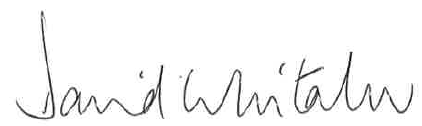 David Whitaker